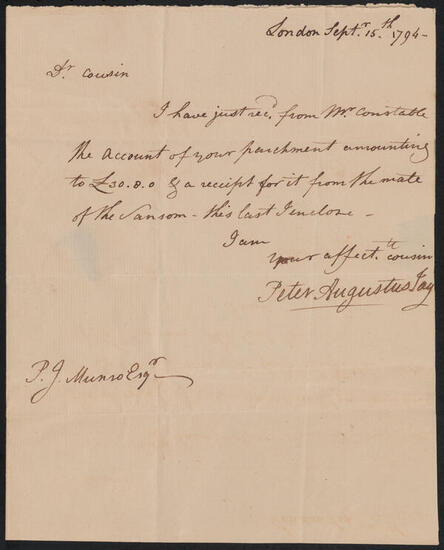 London Septr. 15th. 1794-
Dr Cousin
I have just recd. from Mr. Constable
the account of your parchment amounting
to £30.8.0 & a receipt for it from the mate
of the Sansom - this last I enclose -
I am
your affectte. cousin
Peter Augustus Jay
P. J. Munro Esqr